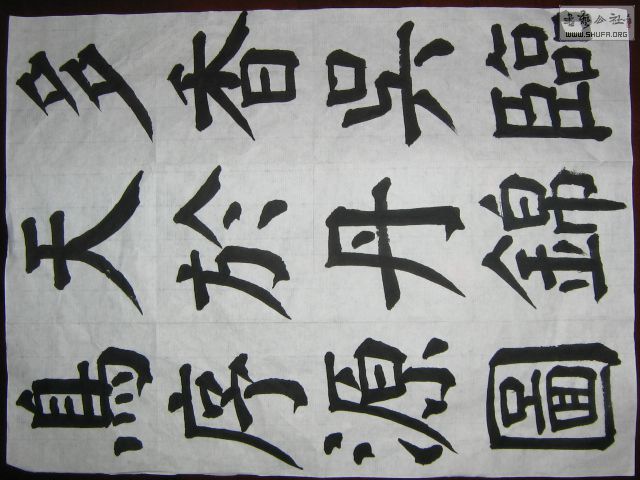 臨錦圖
吳丹源
香於序
多天馬
书艺公社
WWW.SHUFA.ORG